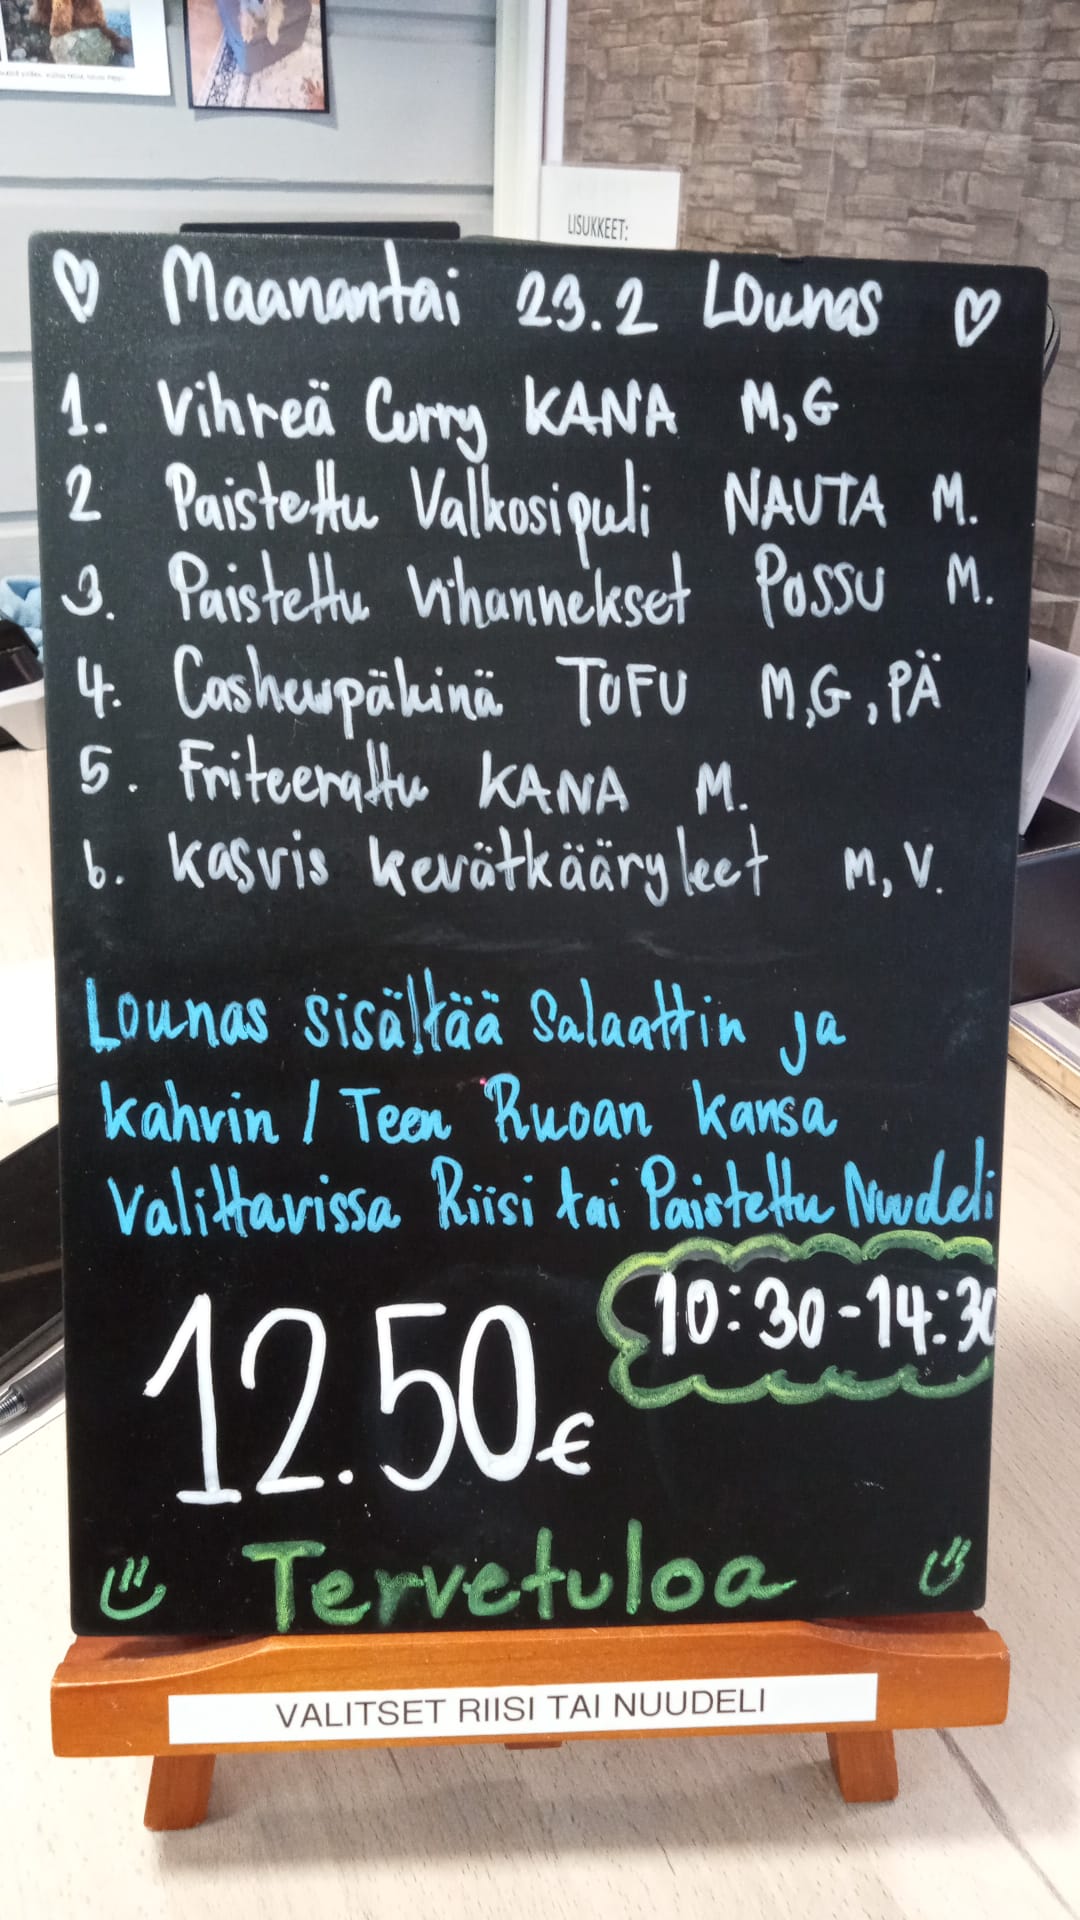 LISUKKEET:
Maanantai 23.2 Lounas
1. Vihreä Curry KANA M,G
2 Paistettu Valkosipuli NAUTA M.
3. Paistettu Vihannekset POSSU M.
4. Cashewpähinä TOFU M,G,PÄ
5. Friteerattu KANA M.
6. Kasvis kevätkääryleet M,V.
Lounas sisältää Salaattin ja
kahvin / Teen Ruoan kansa
Valittavissa Riisi tai Paistettu Nuudeli
10:30-14:30
12.50€
Tervetuloa
VALITSET RIISI TAI NUUDELI